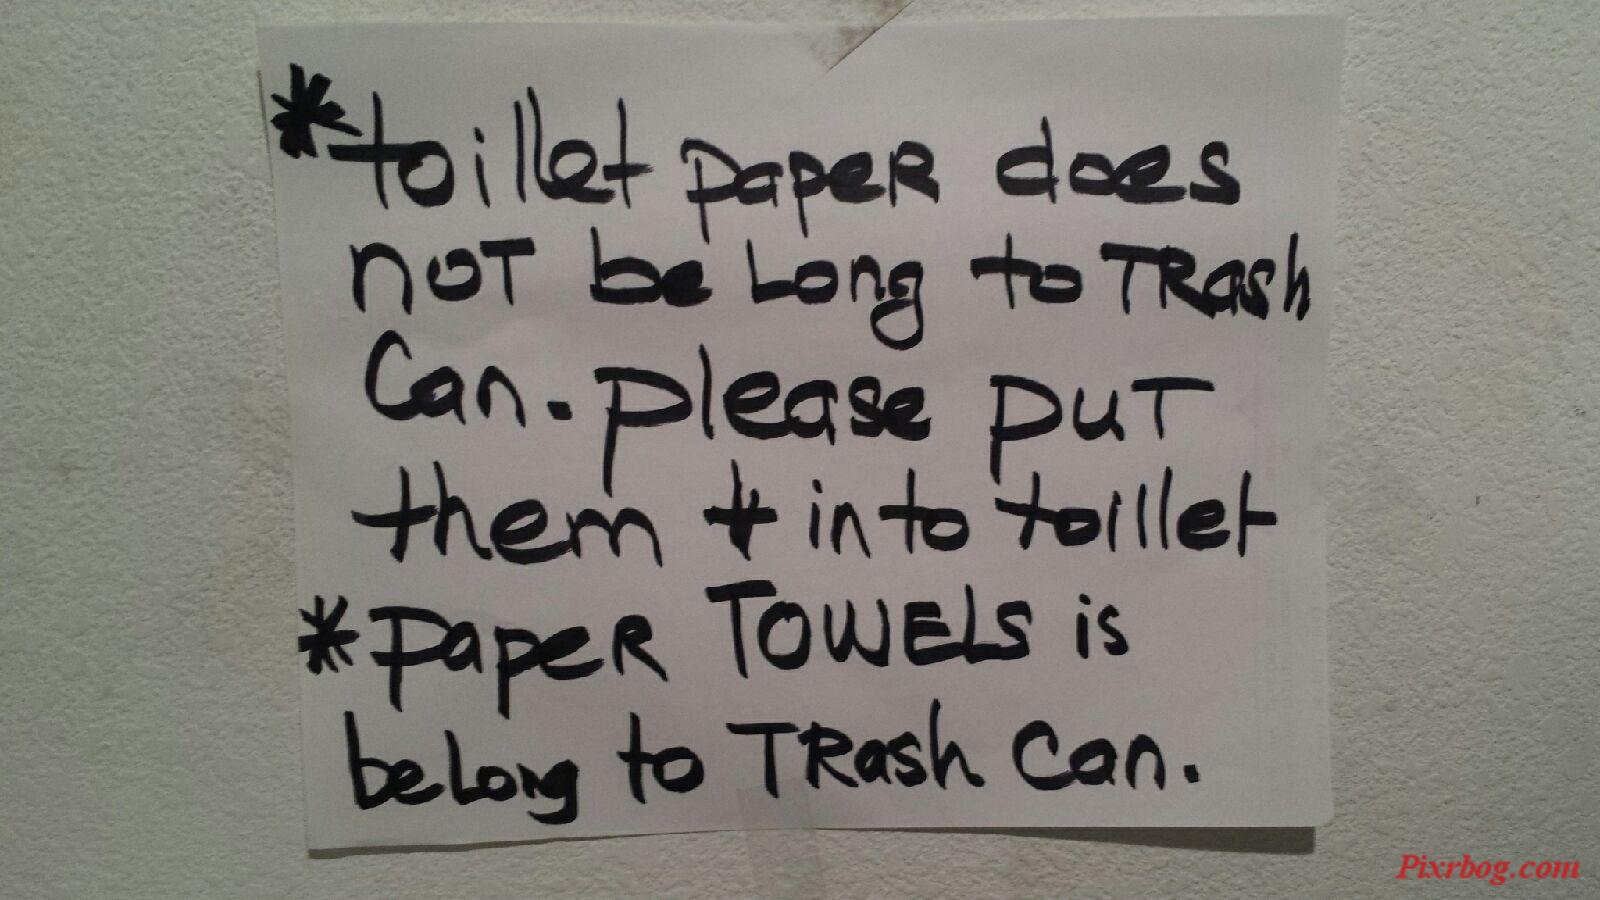 *toillet paper does
not be long to trash
can. please put
them t into toillet
*paper TOWELS is
belong to Trash can.
Pixrbog.com